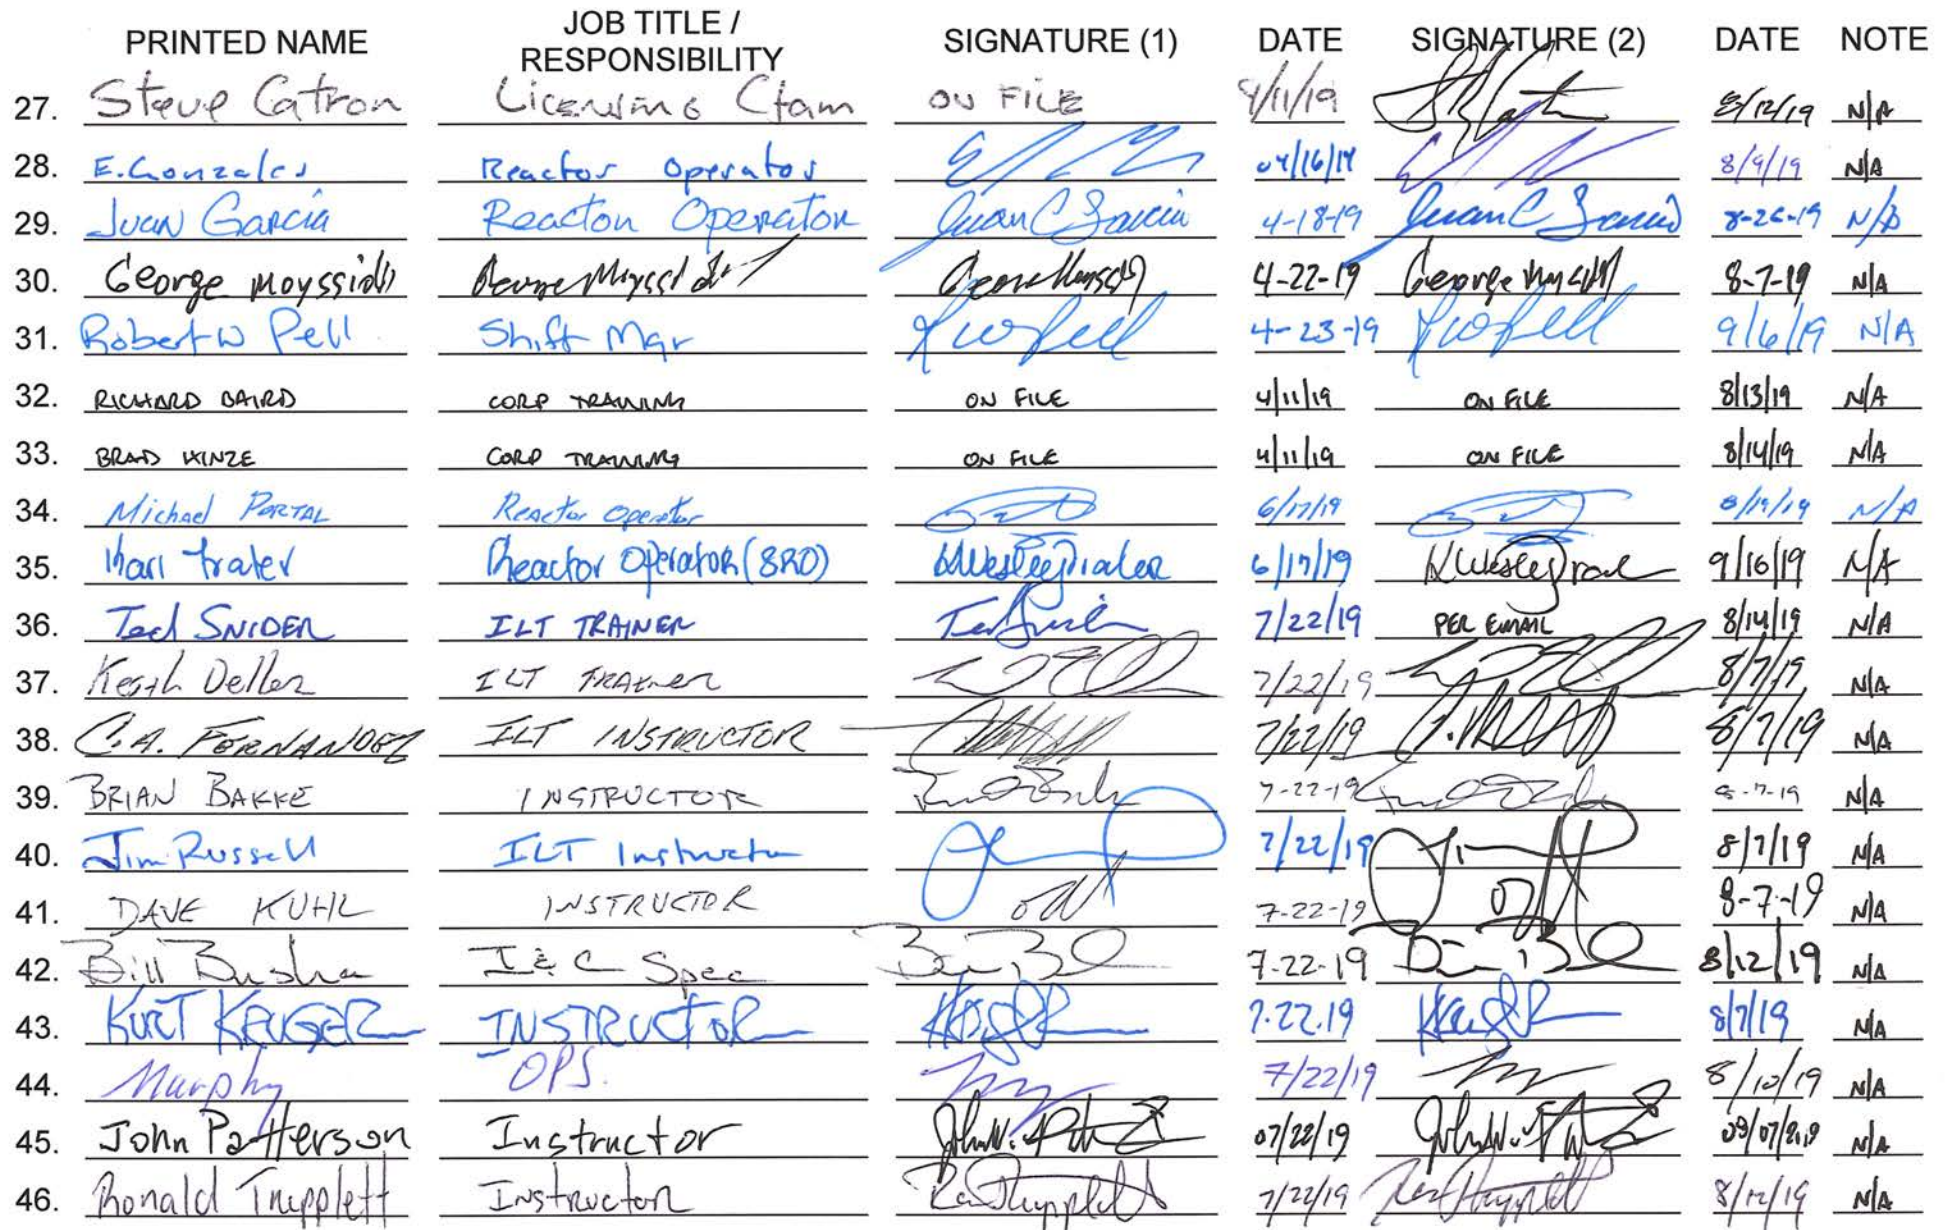 PRINTED NAME JOB TITLE / RESPONSIBILITY SIGNATURE (1) DATE SIGNATURE (2) DATE NOTE
27. Steve Catron Licensing ON FILE 4/11/19 8/12/19 N/A
28. E. Gonzales Reactor Operator 04/16/19 8/9/19 N/A
29. Juan Garcia Reactor Operator Juan C Garcia 4-18-19 Juan C Garcia 8-26-19 N/A
30. George Moyssidis 4-22-19 George 8-7-19 N/A
31. Robert W Pell Shift Mgr RW Pell 4-23-19 RW Pell 9/6/19 N/A
32. RICHARD BAIRD CORP TRAINING ON FILE 4/11/19 ON FILE 8/13/19 N/A
33. BRAD HINZE CORP TRAINING ON FILE 4/11/19 ON FILE 8/14/19 N/A
34. Michael PORTAL Reactor Operator 6/17/19 8/19/19 N/A
35. Karl Prater Reactor Operator (SRO) 6/17/19 9/16/19 N/A
36. Ted SNIDER ILT TRAINER 7/22/19 PER EMAIL 8/14/19 N/A
37. Keith Deller ILT TRAINER 7/22/19 8/7/19 N/A
38. C.A. FERNANDEZ ILT INSTRUCTOR 7/22/19 8/7/19 N/A
39. BRIAN BAKKE INSTRUCTOR 7-22-19 8-7-19 N/A
40. Jim Russell ILT Instructor 7/22/19 8/7/19 N/A
41. DAVE KUHL INSTRUCTOR 7-22-19 8-7-19 N/A
42. Bill Busha I & C Spec 7-22-19 8/12/19 N/A
43. KURT KRUGER INSTRUCTOR 7.22.19 8/7/19 N/A
44. Murphy OPS. 7/22/19 8/10/19 N/A
45. John Patterson Instructor 07/22/19 N/A
46. Ronald Tripplett Instructor 7/22/19 8/12/19 N/A